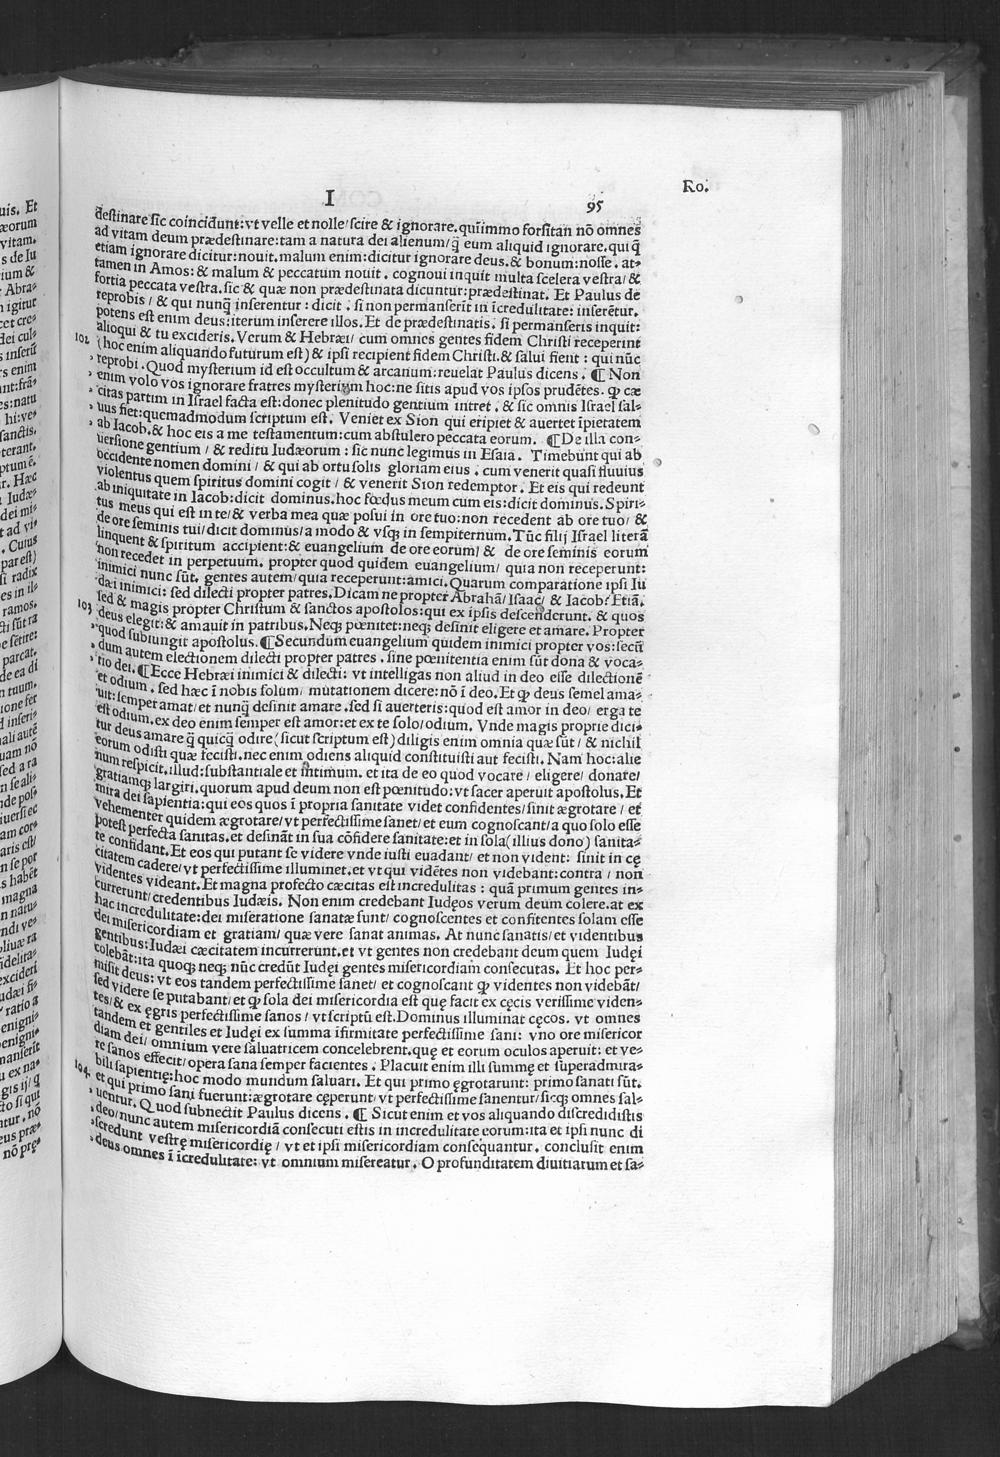 Ro.
I
95
destinare sic coincidunt: vt velle et nolle/ scire & ignorare. quinimmo forsitan nõ omnes
ad vitam deum prædestinare: tam a natura dei alienum/ q̃ eum aliquid ignorare. qui q̃
etiam ignorare dicitur: nouit. malum enim: dicitur ignorare deus. & bonum: nosse. at⸗
tamen in Amos: & malum & peccatum nouit. cognoui inquit multa scelera vestra/ &
fortia peccata vestra. sic & quæ non prædestinata dicuntur: prædestinat. Et Paulus de
reprobis/ & qui nunq̃ inserentur: dicit. si non permanserĩt in ĩcredulitate: inserẽtur.
potens est enim deus: iterum inserere illos. Et de prædestinatis. si permanseris inquit:
alioqui & tu excideris. Verum & Hebræi/ cum omnes gentes fidem Christi receperint
102 (hoc enim aliquando futurum est) & ipsi recipient fidem Christi. & salui fient: qui nũc
reprobi. Quod mysterium id est occultum & arcanum: reuelat Paulus dicens. ¶ Non
enim volo vos ignorare fratres mysterium hoc: ne sitis apud vos ipsos prudẽtes. ꝙ cæ
citas partim in Israel facta est: donec plenitudo gentium intret. & sic omnis Israel sal⸗
uus fiet: quemadmodum scriptum est. Veniet ex Sion qui eripiet & auertet ĩpietatem
ab Iacob. & hoc eis a me testamentum: cum abstulero peccata eorum. ¶ De illa con⸗
uersione gentium/ & reditu Iudæorum: sic nunc legimus in Esaia. Timebunt qui ab
occidente nomen domini/ & qui ab ortu solis gloriam eius. cum venerit quasi fluuius
violentus quem spiritus domini cogit/ & venerit Sion redemptor. Et eis qui redeunt
ab iniquitate in Iacob: dicit dominus. hoc fœdus meum cum eis: dicit dominus. Spiri⸗
tus meus qui est in te/ & verba mea quæ posui in ore tuo: non recedent ab ore tuo/ &
de ore seminis tui/ dicit dominus/ a modo & vsq; in sempiternum. Tũc filij Israel literã
linquent & spiritum accipient: & euangelium de ore eorum/ & de ore seminis eorum
non recedet in perpetuum. propter quod quidem euangelium/ quia non receperunt:
inimici nunc sũt. gentes autem/ quia receperunt: amici. Quarum comparatione ipsi Iu
dæi inimici: sed dilecti propter patres. Dicam ne propter Abrahã/ Isaac/ & Iacob? Etiã.
sed & magis propter Christum & sanctos apostolos: qui ex ipsis descenderunt. & quos
103 deus elegit: & amauit in patribus. Neq; pœnitet: neq; desinit eligere et amare. Propter
quod subiungit apostolus. ¶ Secundum euangelium quidem inimici propter vos: secũ
dum autem electionem dilecti propter patres. sine pœnitentia enim sũt dona & voca⸗
tio dei. ¶ Ecce Hebræi inimici & dilecti: vt intelligas non aliud in deo esse dilectionẽ
et odium. sed hæc ĩ nobis solum/ mutationem dicere: nõ ĩ deo. Et ꝙ deus semel ama⸗
uit: semper amat/ et nunq̃ desinit amare. sed si auerteris: quod est amor in deo/ erga te
est odium. ex deo enim semper est amor: et ex te solo/ odium. Vnde magis proprie dici⸗
tur deus amare q̃ quicq̃ odire (sicut scriptum est) diligis enim omnia quæ sũt/ & nichil
eorum odisti quæ fecisti. nec enim odiens aliquid constituisti aut fecisti. Nam hoc: alie
num respicit. illud: substantiale et intimum. et ita de eo quod vocare/ eligere/ donare/
gratiamq; largiri. quorum apud deum non est pœnitudo: vt sacer aperuit apostolus. Et
mira dei sapientia: qui eos quos ĩ propria sanitate videt confidentes/ sinit ægrotare/ et
vehementer quidem ægrotare/ vt perfectissime sanet/ et eum cognoscant/ a quo solo esse
potest perfecta sanitas. et desinãt in sua cõfidere sanitate: et in sola (illius dono) sanita⸗
te confidant. Et eos qui putant se videre vnde iusti euadant/ et non vident: sinit in cę
citatem cadere/ vt perfectissime illuminet. et vt qui vidẽtes non videbant: contra/ non
videntes videant. Et magna profecto cæcitas est incredulitas: quã primum gentes in⸗
currerunt/ credentibus Iudæis. Non enim credebant Iudęos verum deum colere. at ex
hac incredulitate: dei miseratione sanatæ sunt/ cognoscentes et confitentes solam esse
dei misericordiam et gratiam/ quæ vere sanat animas. At nunc sanatis/ et videntibus
gentibus: Iudæi cæcitatem incurrerunt. et vt gentes non credebant deum quem Iudęi
colebãt: ita quoq; neq; nũc credũt Iudęi gentes misericordiam consecutas. Et hoc per⸗
misit deus: vt eos tandem perfectissime sanet/ et cognoscant ꝙ videntes non videbãt/
sed videre se putabant/ et ꝙ sola dei misericordia est quę facit ex cęcis verissime viden⸗
tes/ & ex ęgris perfectissime sanos/ vt scriptũ est. Dominus illuminat cęcos. vt omnes
tandem et gentiles et Iudęi ex summa ĩfirmitate perfectissime sani: vno ore misericor
diam dei/ omnium vere saluatricem concelebrent. quę et eorum oculos aperuit: et ve⸗
re sanos effecit/ opera sana semper facientes. Placuit enim illi summę et superadmira⸗
bili sapientię: hoc modo mundum saluari. Et qui primo ęgrotarunt: primo sanati sũt.
104 et qui primo sani fuerunt: ægrotare cęperunt/ vt perfectissime sanentur/ sicq; omnes sal⸗
uentur. Quod subnectit Paulus dicens. ¶ Sicut enim et vos aliquando discredidistis
deo/ nunc autem misericordiã consecuti estis in incredulitate eorum: ita et ipsi nunc di
scredunt vestrę misericordię/ vt et ipsi misericordiam consequantur. conclusit enim
deus omnes ĩ ĩcredulitate: vt omnium misereatur. O profunditatem diuitiarum et sa⸗